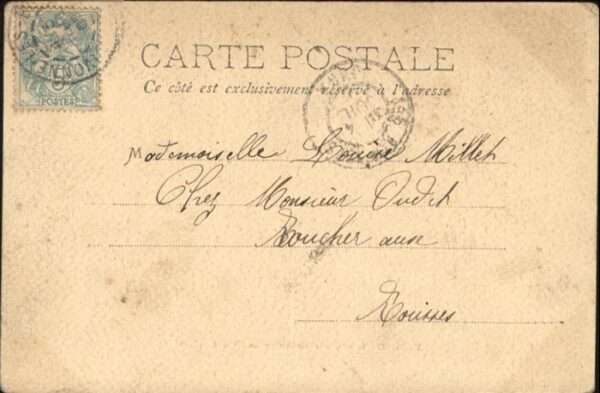 CARTE POSTALE
Ce côté est exclusivement réservé à l'adresse
POSTES
Mademoiselle Louise Millet
Chez Monsieur Oudit
Boucher aux
Rousses